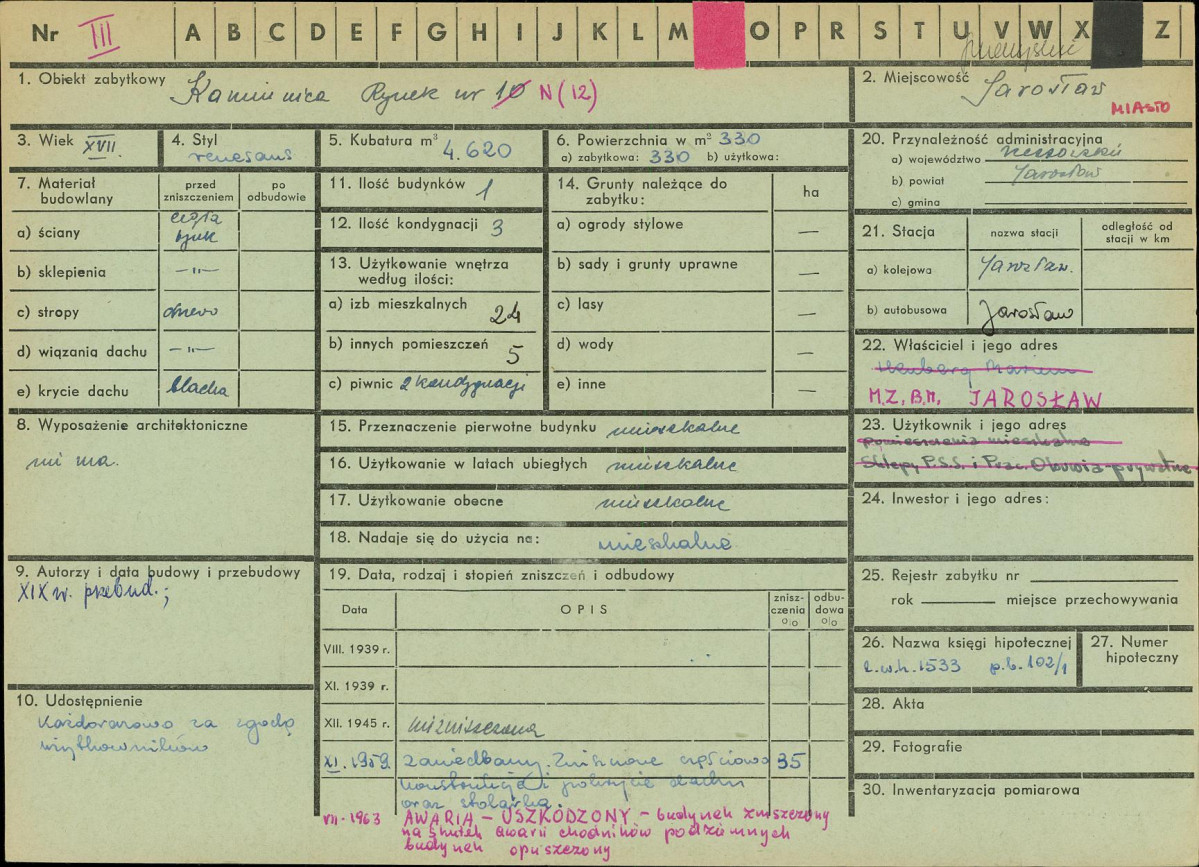 Nr III A B C D E F G H I J K L M O P R S T U V W X Z
1. Obiekt zabytkowy Kamienica Rynek nr 10 N (12)
2. Miejscowość Jarosław
MIASTO
3. Wiek XVII
4. Styl renesans
5. Kubatura m³ 4.620
6. Powierzchnia w m² 330
a) zabytkowa: 330 b) użytkowa:
20. Przynależność administracyjna
a) województwo rzeszowskie
b) powiat Jarosław
c) gmina
7. Materiał budowlany
przed zniszczeniem
po odbudowie
a) ściany cegła
b) sklepienia —"—
c) stropy drewo
d) wiązania dachu —"—
e) krycie dachu blacha
11. Ilość budynków 1
12. Ilość kondygnacji 3
13. Użytkowanie wnętrza
według ilości:
a) izb mieszkalnych 24
b) innych pomieszczeń 5
c) piwnic 2 kondygnacje
14. Grunty należące do
zabytku:
ha
a) ogrody stylowe —
b) sady i grunty uprawne —
c) lasy —
d) wody —
e) inne —
21. Stacja
nazwa stacji
odległość od
stacji w km
a) kolejowa Jarosław.
b) autobusowa Jarosław
22. Właściciel i jego adres
M.Z.B.M. JAROSŁAW
23. Użytkownik i jego adres
pomieszczenia mieszkalne
Sklepy P.S.S. i Prac. Obuwia prywatne
24. Inwestor i jego adres:
8. Wyposażenie architektoniczne
nie ma.
15. Przeznaczenie pierwotne budynku mieszkalne
16. Użytkowanie w latach ubiegłych mieszkalne
17. Użytkowanie obecne mieszkalne
18. Nadaje się do użycia na: mieszkalne
9. Autorzy i data budowy i przebudowy
XIX w. przebud.;
10. Udostępnienie
Każdorazowo za zgodą
użytkowników
19. Data, rodzaj i stopień zniszczeń i odbudowy
Data
OPIS
znisz-
czenia
%
odbu-
dowa
%
VIII. 1939 r.
XI. 1939 r.
XII. 1945 r. niezniszczona
XI. 1959 zaniedbany. Zniszczone częściowo 35
konstrukcja i pokrycie dachu
oraz stolarka.
VII-1963 AWARIA – USZKODZONY – budynek zniszczony
na skutek awarii chodników podziemnych
budynek opuszczony
25. Rejestr zabytku nr
rok miejsce przechowywania
26. Nazwa księgi hipotecznej
l.w.h. 1533 p.b. 102/1
27. Numer
hipoteczny
28. Akta
29. Fotografie
30. Inwentaryzacja pomiarowa